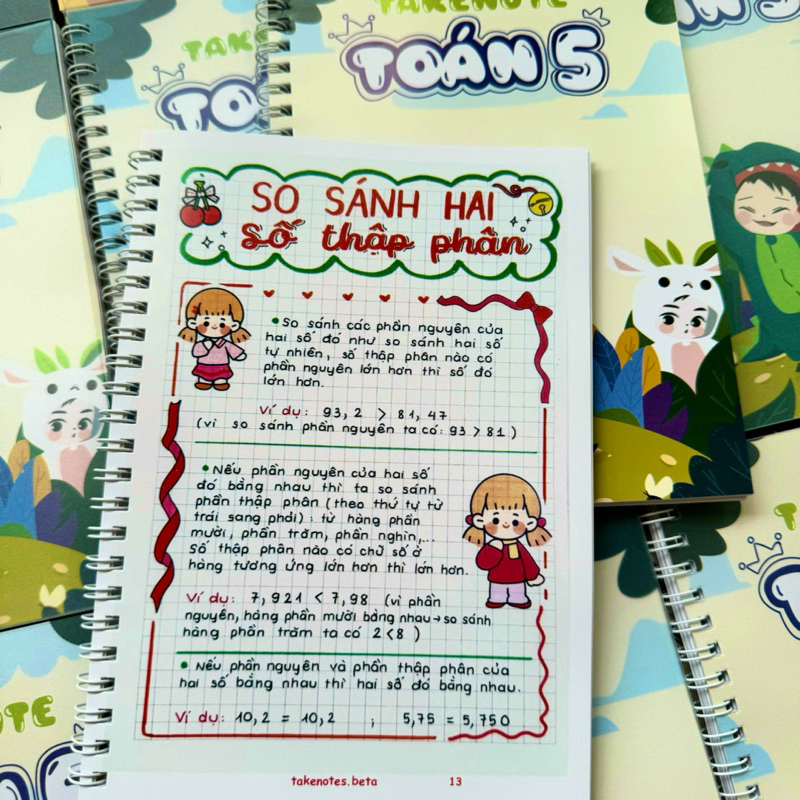 TAKENOTE
TOÁN 5
TAKE
TO
SO SÁNH HAI
số thập phân
• So sánh các phần nguyên của
hai số đó như so sánh hai số
tự nhiên, số thập phân nào có
phần nguyên lớn hơn thì số đó
lớn hơn.
Ví dụ: 93,2 > 81,47
(vì so sánh phần nguyên ta có: 93 > 81)
• Nếu phần nguyên của hai số
đó bằng nhau thì ta so sánh
phần thập phân (theo thứ tự từ
trái sang phải): từ hàng phần
mười, phần trăm, phần nghìn,...
Số thập phân nào có chữ số ở
hàng tương ứng lớn hơn thì lớn hơn.
Ví dụ: 7,921 < 7,98 (vì phần
nguyên, hàng phần mười bằng nhau → so sánh
hàng phần trăm ta có 2<8)
• Nếu phần nguyên và phần thập phân của
hai số bằng nhau thì hai số đó bằng nhau.
Ví dụ: 10,2 = 10,2 ; 5,75 = 5,750
takenotes.beta 13
NOTE